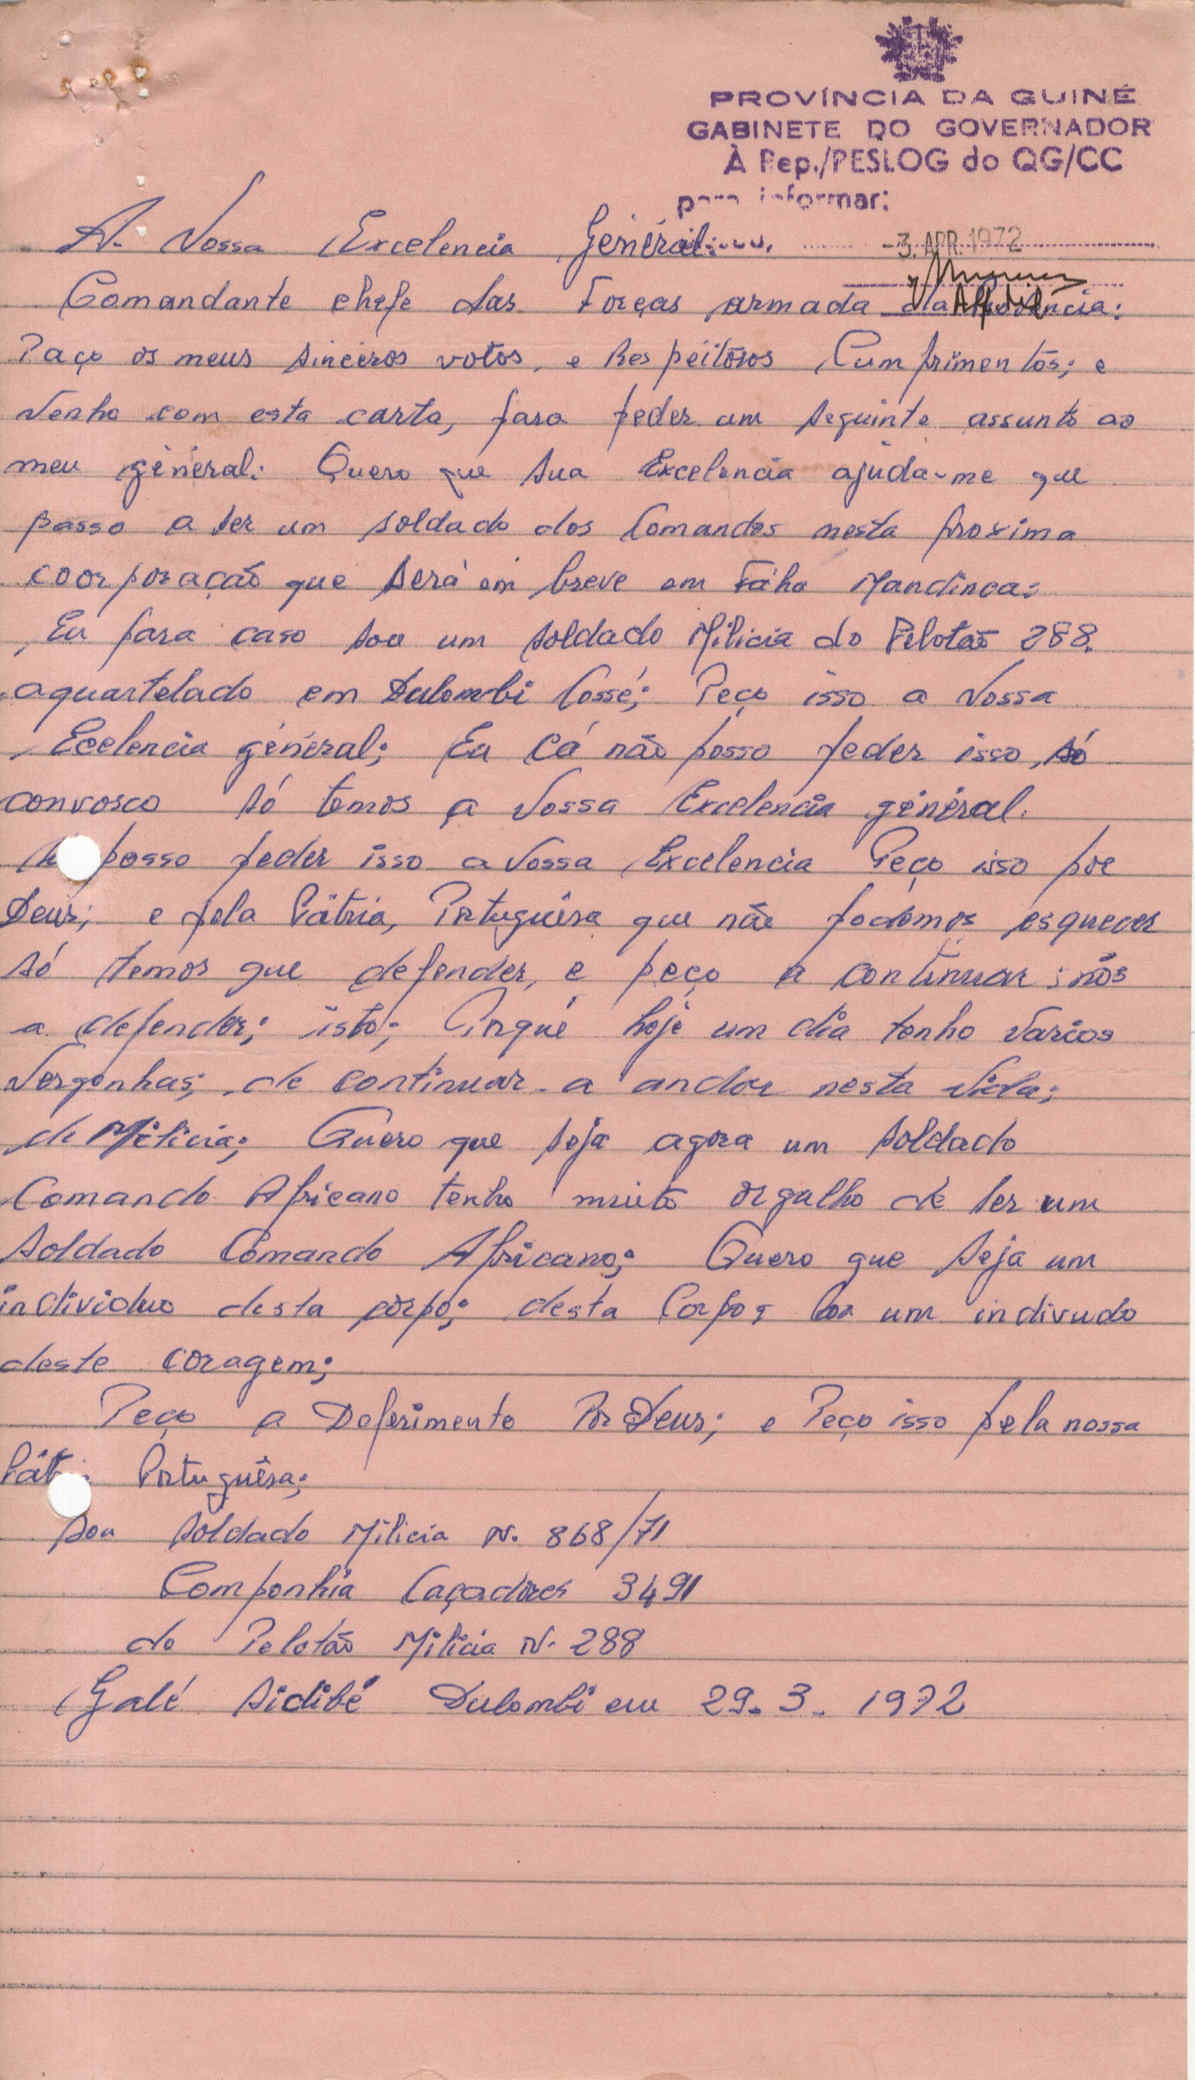 PROVÍNCIA DA GUINÉ
GABINETE DO GOVERNADOR
À Rep./PESLOG do QG/CC
para informar:
-3. APR. 1972
A. Vossa Excelencia Géneral:
Comandante chefe das Forças armada da Provincia:
Faço os meus sinceros votos, e Respeitosos Cumprimentos; e
Venho com esta carta, para peder um seguinte assunto ao
meu géneral: Quero que sua Excelencia ajuda-me que
passo a ser um soldado dos Comandos nesta proxima
coorporação que será em breve em Fáha Mandinca:
Eu para caso sou um soldado Milicia do Pelotão 288.
aquartelado em Dulombi Cossé; Peço isso a Vossa
Ecelencia géneral; Eu Cá não posso peder isso, só
convosco só temos a Vossa Excelencia géneral.
posso peder isso a Vossa Excelencia Peço isso por
Deus; e pela Pátria, Portuguêsa que não podemos esquecer
só temos que defender, e peço a continuar; nós
a defender; isto; Porqué hoje um dia tenho varios
Vergonhas; de continuar a andar nesta vida;
de Milicia; Quero que seja agora um soldado
Comando Africano tenho muito orgalho de ser um
soldado Comando Africano; Quero que seja um
individuo desta corpo; desta Corpo; um indivudo
deste coragem;
Peço a Deferimento Por Deus; e Peço isso pela nossa
Pát Portuguêsa;
sou soldado Milicia N. 868/71
Componhia Caçadores 3491
do Pelotão Milicia N. 288
Galé sidibé Dulombi em 29. 3. 1972